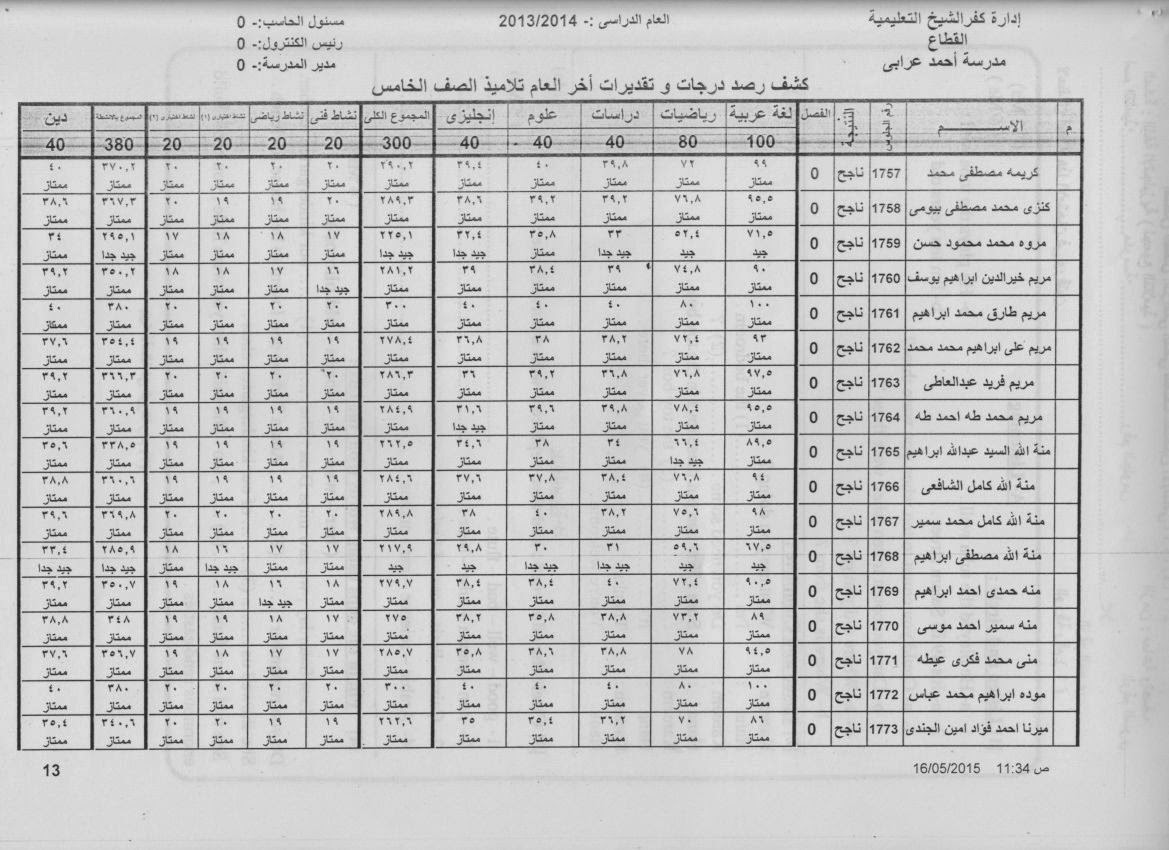 إدارة كفرالشيخ التعليمية
القطاع
مدرسة أحمد عرابى
العام الدراسى :- 2013/2014
مسئول الحاسب:- 0
رئيس الكنترول:- 0
مدير المدرسة:- 0
كشف رصد درجات و تقديرات أخر العام تلاميذ الصف الخامس
م الاســـــم رقم الجلوس النتيجة الفصل لغة عربية رياضيات دراسات علوم إنجليزى المجموع الكلى نشاط فنى نشاط رياضى نشاط اختيارى (١) نشاط اختيارى (٢) المجموع بالانشطة دين
100 80 40 40 40 300 20 20 20 20 380 40
كريمه مصطفى محمد 1757 ناجح 0 ٩٩ ٧٢ ٣٩,٨ ٤٠ ٣٩,٤ ٢٩٠,٢ ٢٠ ٢٠ ٢٠ ٢٠ ٣٧٠,٢ ٤٠
ممتاز ممتاز ممتاز ممتاز ممتاز ممتاز ممتاز ممتاز ممتاز ممتاز ممتاز ممتاز
كنزى محمد مصطفى بيومى 1758 ناجح 0 ٩٥,٥ ٧٦,٨ ٣٩,٢ ٣٩,٢ ٣٨,٦ ٢٨٩,٣ ٢٠ ١٩ ١٩ ٢٠ ٣٦٧,٣ ٣٨,٦
ممتاز ممتاز ممتاز ممتاز ممتاز ممتاز ممتاز ممتاز ممتاز ممتاز ممتاز ممتاز
مروه محمد محمود حسن 1759 ناجح 0 ٧١,٥ ٥٢,٤ ٣٣ ٣٥,٨ ٣٢,٤ ٢٢٥,١ ١٧ ١٨ ١٨ ١٧ ٢٩٥,١ ٣٤
جيد جيد جيد جدا ممتاز جيد جدا جيد جدا ممتاز ممتاز ممتاز ممتاز جيد جدا ممتاز
مريم خيرالدين ابراهيم يوسف 1760 ناجح 0 ٩٠ ٧٤,٨ ٣٩ ٣٨,٤ ٣٩ ٢٨١,٢ ١٦ ١٧ ١٨ ١٨ ٣٥٠,٢ ٣٩,٢
ممتاز ممتاز ممتاز ممتاز ممتاز ممتاز جيد جدا ممتاز ممتاز ممتاز ممتاز ممتاز
مريم طارق محمد ابراهيم 1761 ناجح 0 ١٠٠ ٨٠ ٤٠ ٤٠ ٤٠ ٣٠٠ ٢٠ ٢٠ ٢٠ ٢٠ ٣٨٠ ٤٠
ممتاز ممتاز ممتاز ممتاز ممتاز ممتاز ممتاز ممتاز ممتاز ممتاز ممتاز ممتاز
مريم على ابراهيم محمد محمد 1762 ناجح 0 ٩٣ ٧٢,٤ ٣٨,٢ ٣٨ ٣٦,٨ ٢٧٨,٤ ١٩ ١٩ ١٩ ١٩ ٣٥٤,٤ ٣٧,٦
ممتاز ممتاز ممتاز ممتاز ممتاز ممتاز ممتاز ممتاز ممتاز ممتاز ممتاز ممتاز
مريم فريد عبدالعاطى 1763 ناجح 0 ٩٧,٥ ٧٦,٨ ٣٦,٨ ٣٩,٢ ٣٦ ٢٨٦,٣ ٢٠ ٢٠ ٢٠ ٢٠ ٣٦٦,٣ ٣٩,٢
ممتاز ممتاز ممتاز ممتاز ممتاز ممتاز ممتاز ممتاز ممتاز ممتاز ممتاز ممتاز
مريم محمد طه احمد طه 1764 ناجح 0 ٩٥,٥ ٧٨,٤ ٣٩,٨ ٣٩,٦ ٣١,٦ ٢٨٤,٩ ١٩ ١٩ ١٩ ١٩ ٣٦٠,٩ ٣٩,٢
ممتاز ممتاز ممتاز ممتاز جيد جدا ممتاز ممتاز ممتاز ممتاز ممتاز ممتاز ممتاز
منة الله السيد عبدالله ابراهيم 1765 ناجح 0 ٨٩,٥ ٦٦,٤ ٣٤ ٣٨ ٣٤,٦ ٢٦٢,٥ ١٩ ١٩ ١٩ ١٩ ٣٣٨,٥ ٣٥,٦
ممتاز جيد جدا ممتاز ممتاز ممتاز ممتاز ممتاز ممتاز ممتاز ممتاز ممتاز ممتاز
منة الله كامل الشافعى 1766 ناجح 0 ٩٤ ٧٦,٨ ٣٨,٤ ٣٧,٨ ٣٧,٦ ٢٨٤,٦ ١٩ ١٩ ١٩ ١٩ ٣٦٠,٦ ٣٨,٨
ممتاز ممتاز ممتاز ممتاز ممتاز ممتاز ممتاز ممتاز ممتاز ممتاز ممتاز ممتاز
منة الله كامل محمد سمير 1767 ناجح 0 ٩٨ ٧٥,٦ ٣٨,٢ ٤٠ ٣٨ ٢٨٩,٨ ٢٠ ٢٠ ٢٠ ٢٠ ٣٦٩,٨ ٣٩,٦
ممتاز ممتاز ممتاز ممتاز ممتاز ممتاز ممتاز ممتاز ممتاز ممتاز ممتاز ممتاز
منة الله مصطفى ابراهيم 1768 ناجح 0 ٦٧,٥ ٥٩,٦ ٣١ ٣٠ ٢٩,٨ ٢١٧,٩ ١٧ ١٧ ١٦ ١٨ ٢٨٥,٩ ٣٣,٤
جيد جيد جيد جدا جيد جدا جيد جيد ممتاز ممتاز جيد جدا ممتاز جيد جدا جيد جدا
منه حمدى احمد ابراهيم 1769 ناجح 0 ٩٠,٥ ٧٢,٤ ٤٠ ٣٨,٤ ٣٨,٤ ٢٧٩,٧ ١٨ ١٦ ١٨ ١٩ ٣٥٠,٧ ٣٩,٢
ممتاز ممتاز ممتاز ممتاز ممتاز ممتاز ممتاز جيد جدا ممتاز ممتاز ممتاز ممتاز
منه سمير احمد موسى 1770 ناجح 0 ٨٩ ٧٣,٢ ٣٨,٨ ٣٥,٨ ٣٨,٢ ٢٧٥ ١٧ ١٨ ١٩ ١٩ ٣٤٨ ٣٨,٨
ممتاز ممتاز ممتاز ممتاز ممتاز ممتاز ممتاز ممتاز ممتاز ممتاز ممتاز ممتاز
منى محمد فكرى عيطه 1771 ناجح 0 ٩٤,٥ ٧٨ ٣٨,٨ ٣٨,٦ ٣٥,٨ ٢٨٥,٧ ١٧ ١٧ ١٨ ١٩ ٣٥٦,٧ ٣٧,٦
ممتاز ممتاز ممتاز ممتاز ممتاز ممتاز ممتاز ممتاز ممتاز ممتاز ممتاز ممتاز
موده ابراهيم محمد عباس 1772 ناجح 0 ١٠٠ ٨٠ ٤٠ ٤٠ ٤٠ ٣٠٠ ٢٠ ٢٠ ٢٠ ٢٠ ٣٨٠ ٤٠
ممتاز ممتاز ممتاز ممتاز ممتاز ممتاز ممتاز ممتاز ممتاز ممتاز ممتاز ممتاز
ميرنا احمد فؤاد امين الجندى 1773 ناجح 0 ٨٦ ٧٠ ٣٦,٢ ٣٥,٤ ٣٥ ٢٦٢,٦ ١٩ ١٩ ٢٠ ٢٠ ٣٤٠,٦ ٣٥,٤
ممتاز ممتاز ممتاز ممتاز ممتاز ممتاز ممتاز ممتاز ممتاز ممتاز ممتاز ممتاز
16/05/2015 11:34 ص
13